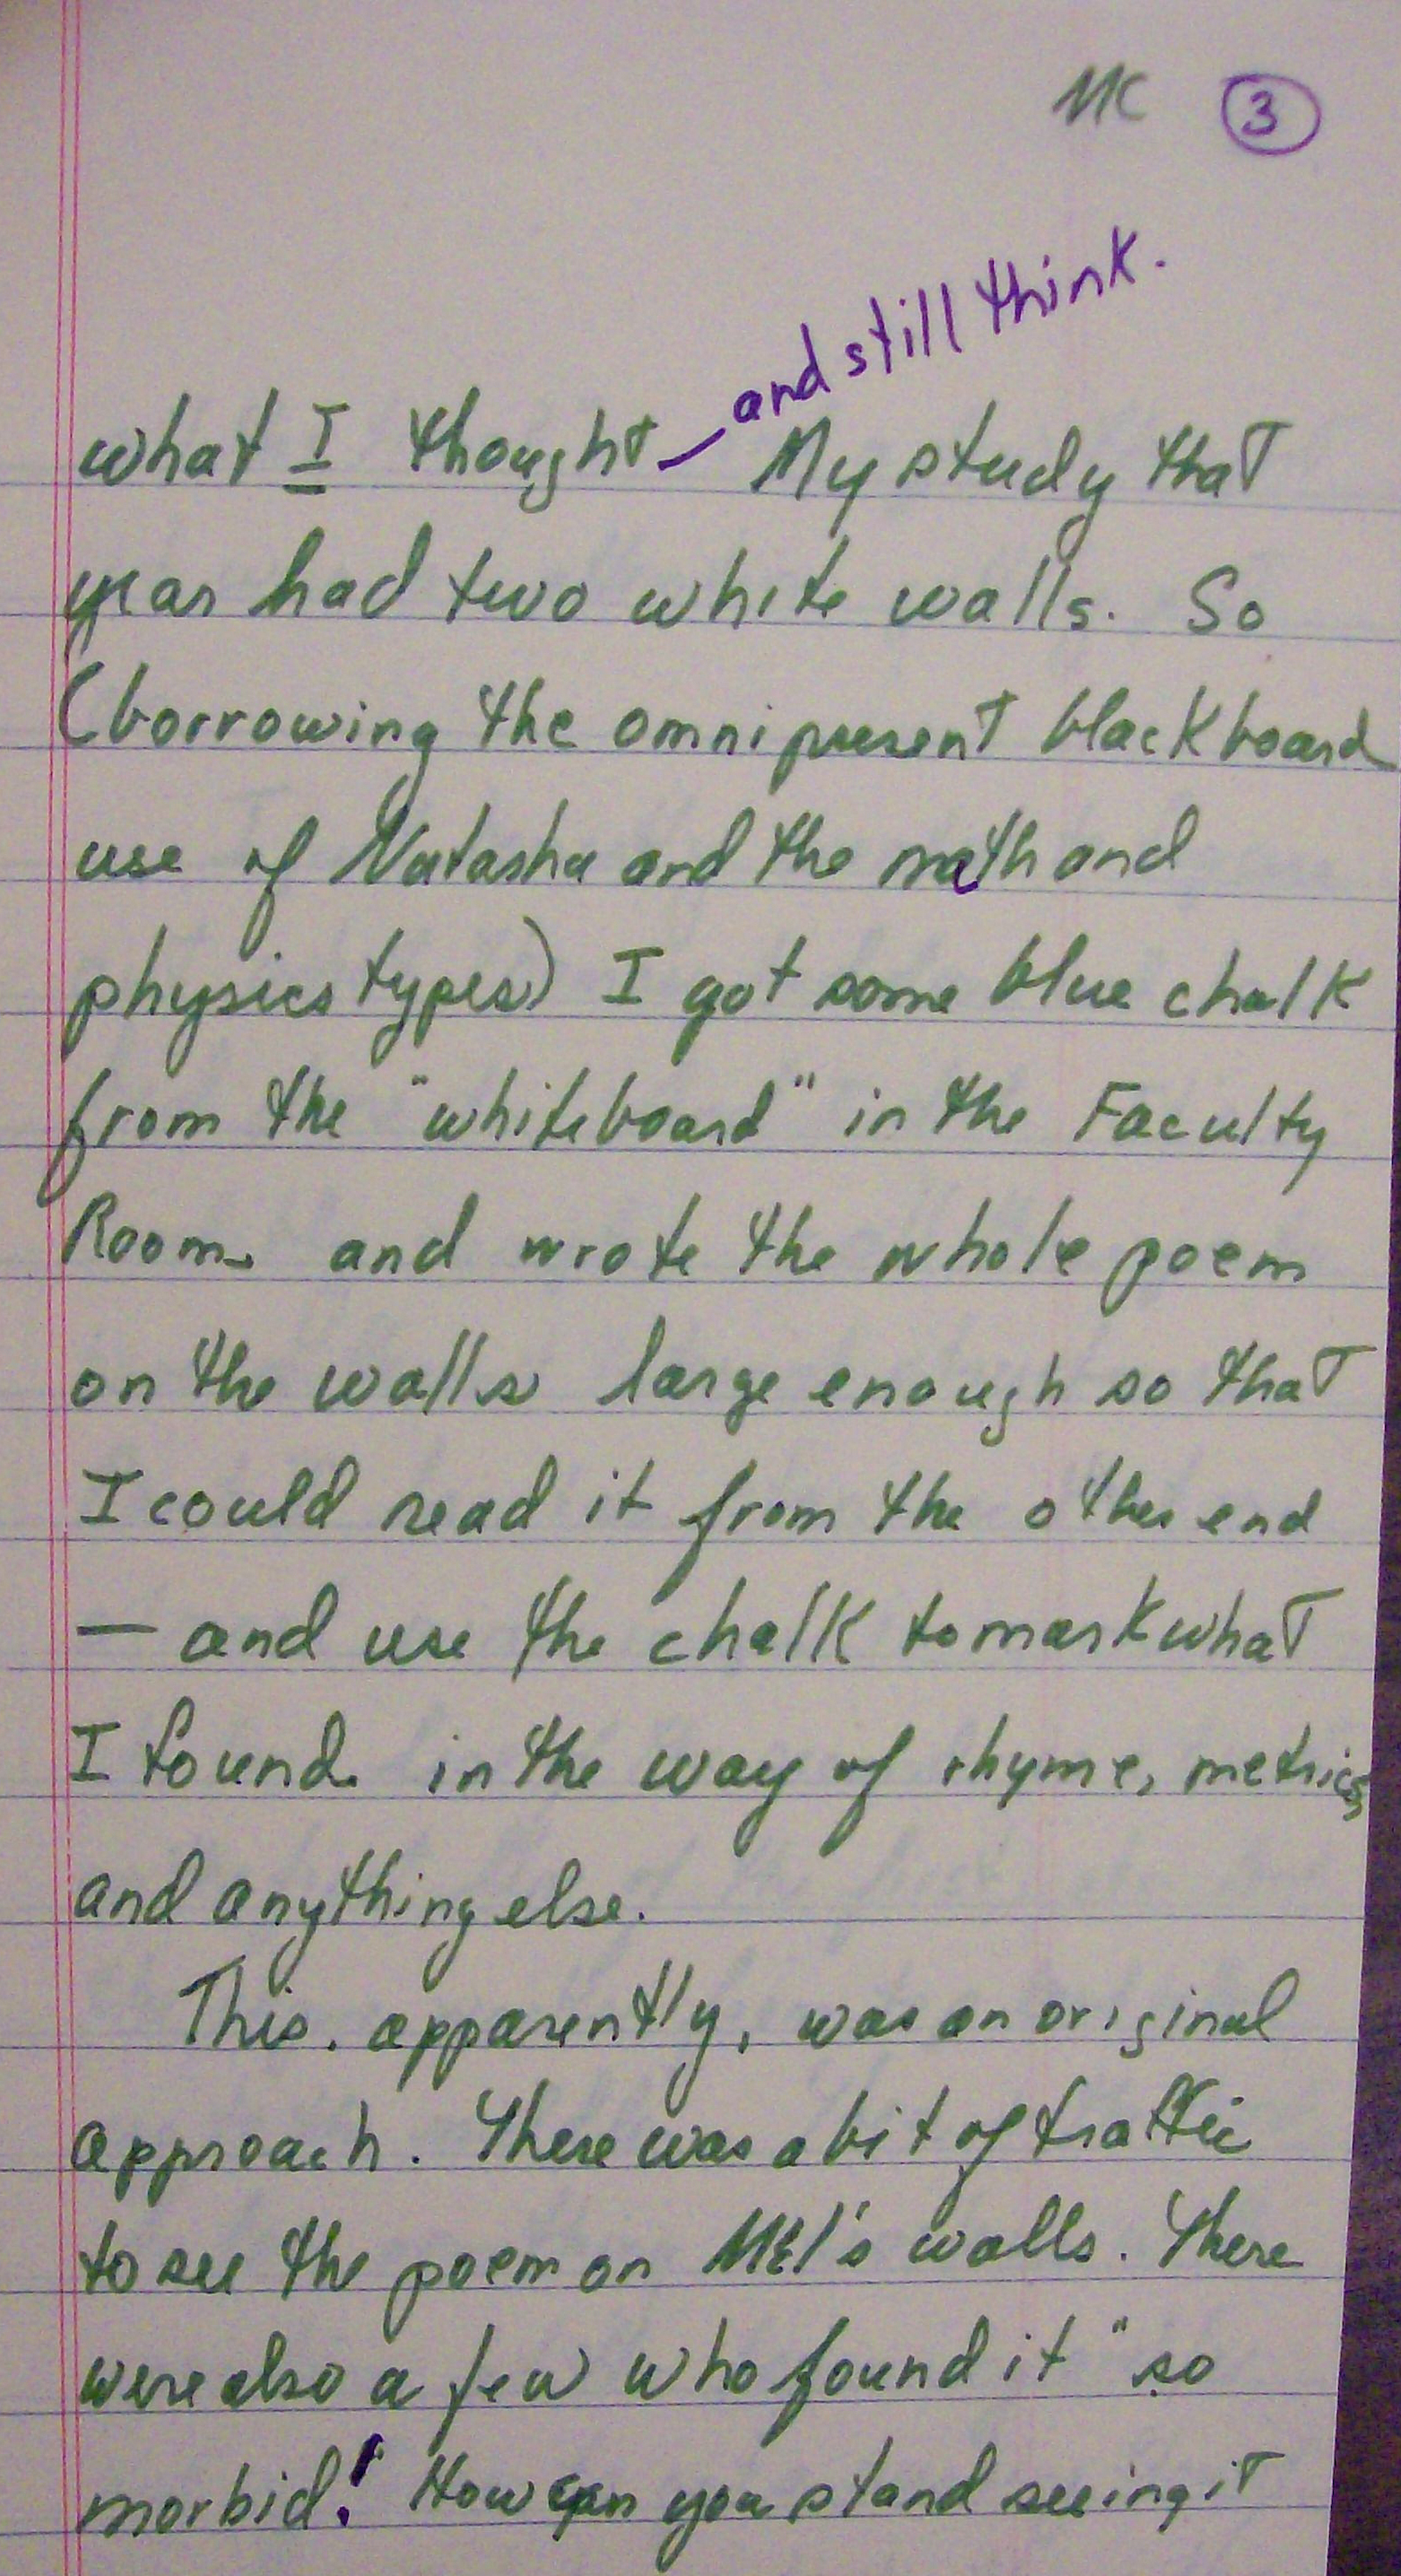 MC 3
and still think.
what I thought — My study that
year had two white walls. So
(borrowing the omnipresent blackboard
use of Natasha and the math and
physics types) I got some blue chalk
from the "whiteboard" in the Faculty
Room and wrote the whole poem
on the walls large enough so that
I could read it from the other end
— and use the chalk to mark what
I found in the way of rhyme, metrics,
and anything else.
This, apparently, was an original
approach. There was a bit of traffic
to see the poem on Mel's walls. There
were also a few who found it "so
morbid! How can you stand seeing it